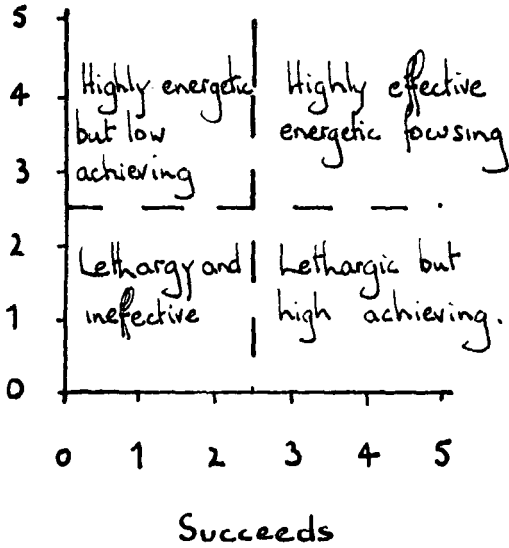 5
4
3
2
1
0
Highly energetic
but low
achieving
Highly effective
energetic focusing
Lethargy and
ineffective
Lethargic but
high achieving.
0 1 2 3 4 5
Succeeds